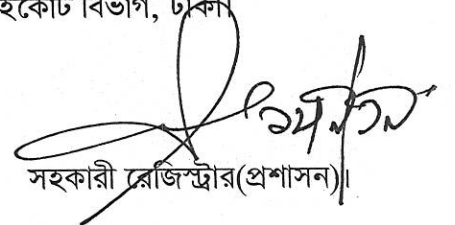 হাইকোর্ট বিভাগ, ঢাকা।
সহকারী রেজিস্ট্রার(প্রশাসন)।